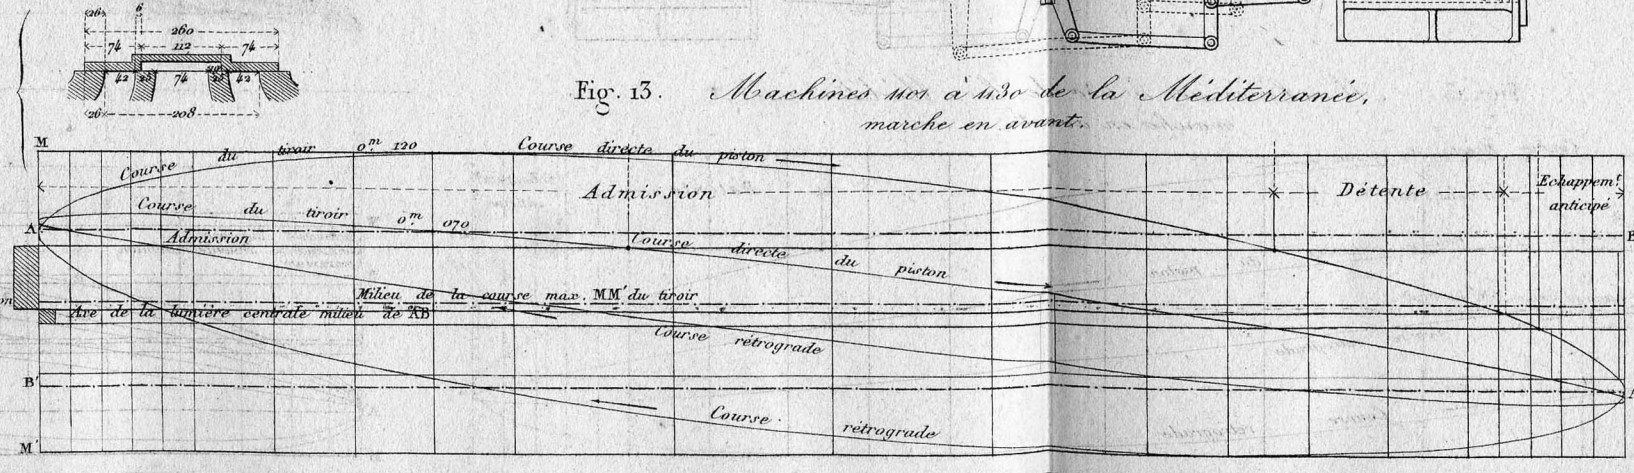 26 6
260
74 112 74
42 25 74 25 42
26 208
Fig. 13. Machines 1401 à 1430 de la Méditerranée,
marche en avant.
M
Course du tiroir 0m 120 Course directe du piston
Admission Détente Echappemt.
anticipé
Course du tiroir 0m 070
A
Admission Course directe du piston
Milieu de la course max. MM' du tiroir
Axe de la lumière centrale milieu de AB
Course rétrograde
B'
Course rétrograde
M'